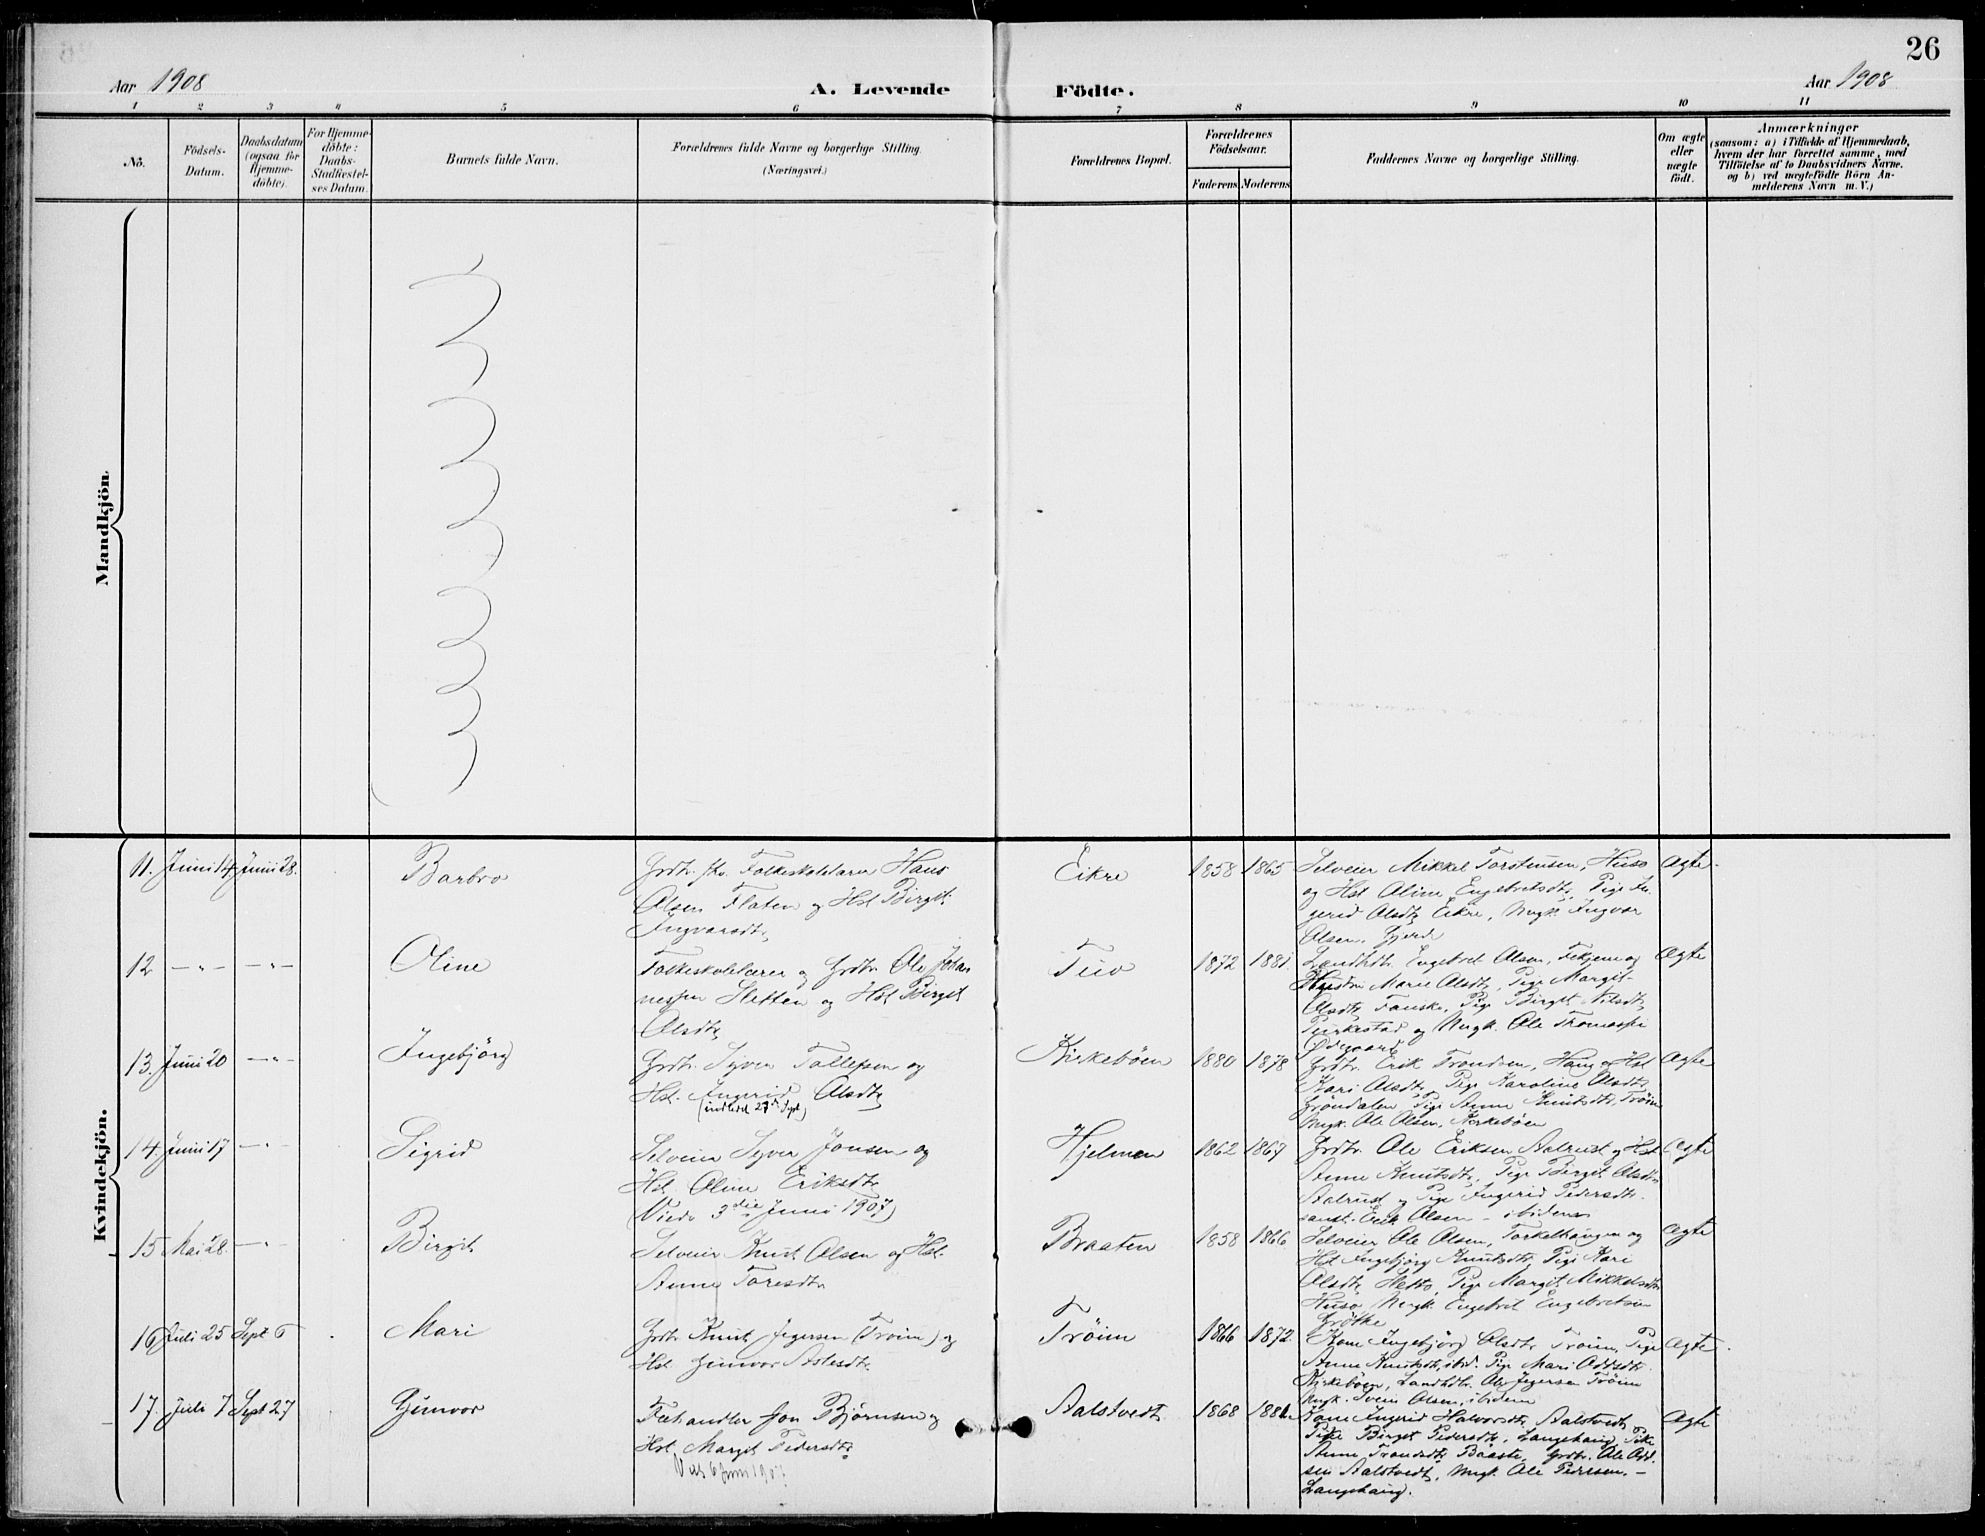 26
Aar 1908
A. Levende Födte.
Aar 1908
1 2 3 4 5 6 7 8 9 10 11
Nö.
Födsels-
Datum.
Daabsdatum
(ogsaa for
Hjemme-
döbte).
For Hjemme-
döbte:
Daabs-
Stadfæstel-
ses Datum.
Barnets fulde Navn.
Forældrenes fulde Navne og borgerlige Stilling.
(Næringsvei.)
Forældrenes Bopæl.
Forældrenes
Födselsaar.
Faderens Moderens
Faddernes Navne og borgerlige Stilling.
Om ægte
eller
uægte
födt.
Anmærkninger
(saasom: a) i Tilfælde af Hjemmedaab,
hvem der har forrettet samme, med
Tilföielse af to Daabsvidners Navne.
og b) ved uægtefödte Börn An-
melderens Navn m. V.)
Mandkjön.
Kvindekjön.
11. Juni 14 Juni 28. Barbro
Grdbr. fhv. Folkeskolelærer Hans
Olsen Flaten og Hst Birgit
Ingvarsdtr
Eikre 1858 1865
Selveier Mikkel Torstensen, Huso
og Hst Oline Engebretsdtr, Pige In-
gerid Olsdtr Eikre, Ungk. Ingvar
Olsen, Gjerde
Ægte
12 —"— —"— Oline
Folkeskolelærer og Grdbr Ole Johan
nessen Sletten og Hst Birgit
Olsdtr
Tuv 1872 1881
Landhdlr. Engebret Olsen, Fekjem og
Hustru Marie Olsdtr, Pige Margit
Olsdtr Fauske, Pige Birgit Nilsdtr,
og Ungk. Ole Thomassen
Ødegaard
Ægte
13. Juni 20 —"— Ingebjörg
Grdbr. Syver Tollefsen og
Hst. Ingerid Olsdtr
(indledet 27de Sept)
Kirkeböen 1880 1878
Grdbr. Erik Trondsen, Haug og Hst
Kari Olsdtr, Pige Karoline Olsdtr
Gröndalen, Pige Anne Knutsdtr, Tröim
Ungk. Ole Olsen, Kirkeböen
Ægte
14. Juni 17 —"— Sigrid
Selveier Syver Jonsen og
Hst. Oline Eriksdtr
(Viede 3die Juni 1907)
Hjelmen 1862 1867
Grdbr Ole Eriksen Aalrust og Hst
Anne Knutsdtr, Pige Birgit Olsdtr
Aalrust og Pige Ingerid Pedersdtr.
samt. Erik Olsen — ibidem
Ægte
15 Mai 28. —"— Birgit
Selveier Knut Olsen og Hst.
Anne Toresdtr
Braaten 1858 1866
Selveier Ole Olsen, Torkelhaugen og
Hst Ingebjörg Knutsdtr, Pige Kari
Olsdtr, Pige Margit Mikkelsdtr
Huso, Ungk. Engebret Engebretsen
Grötke
Ægte
16 Juli 25 Sept 6 Mari
Grdbr. Knut Jegersen (Tröim) og
Hst Gunvor Aslesdtr.
Tröim 1866 1872
Kone Ingebjörg Olsdtr Tröim, Pige
Anne Knutsdtr, ibid. Pige Mari Oddsdtr.
Kirkeböen, Landhdlr. Ole Jegersen Tröim
Ungk. Svein Olsen, ibidem
Ægte
17. Juli 7 Sept 27 Gunvor
Fæhandler Jon Björnsen og
Hst. Margit Pedersdtr
Viet 6 Juni 1907
Aalstvedt 1868 1881
Kone Ingerid Halvorsdtr Aalstvedt
Pike Birgit Pedersdtr, Langehaug, Pike
Anne Trondsdtr Baaste, Grdbr. Ole Odd-
sen Aalstvedt, Ungk. Ole Pedersen. —
Langehaug.
Ægte